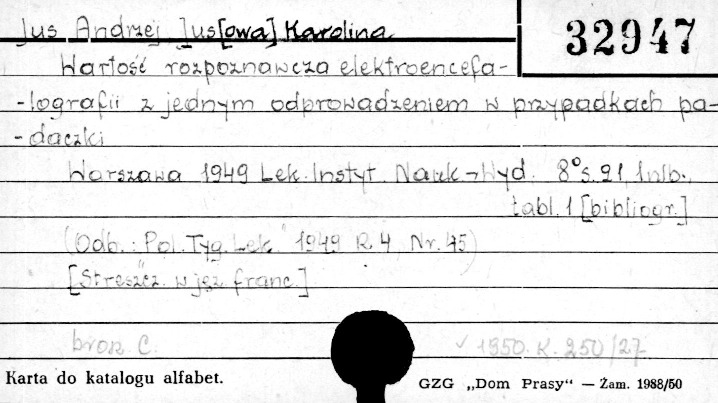 Jus Andrzej, Jus[owa] Karolina.
32947
Wartość rozpoznawcza elektroencefa-
-lografii z jednym odprowadzeniem w przypadkach pa-
-daczki
Warszawa 1949 Lek. Instyt. Nauk.-Wyd. 8° s. 21, 1 nlb.,
tabl. 1 [bibliogr.]
(Odb.: Pol. Tyg. Lek." 1949 R. 4, Nr. 45)
[Streszcz. w jęz. franc.]
brosz. C. 1950. K. 250/27.
Karta do katalogu alfabet.
GZG „Dom Prasy“ — Żam. 1988/50